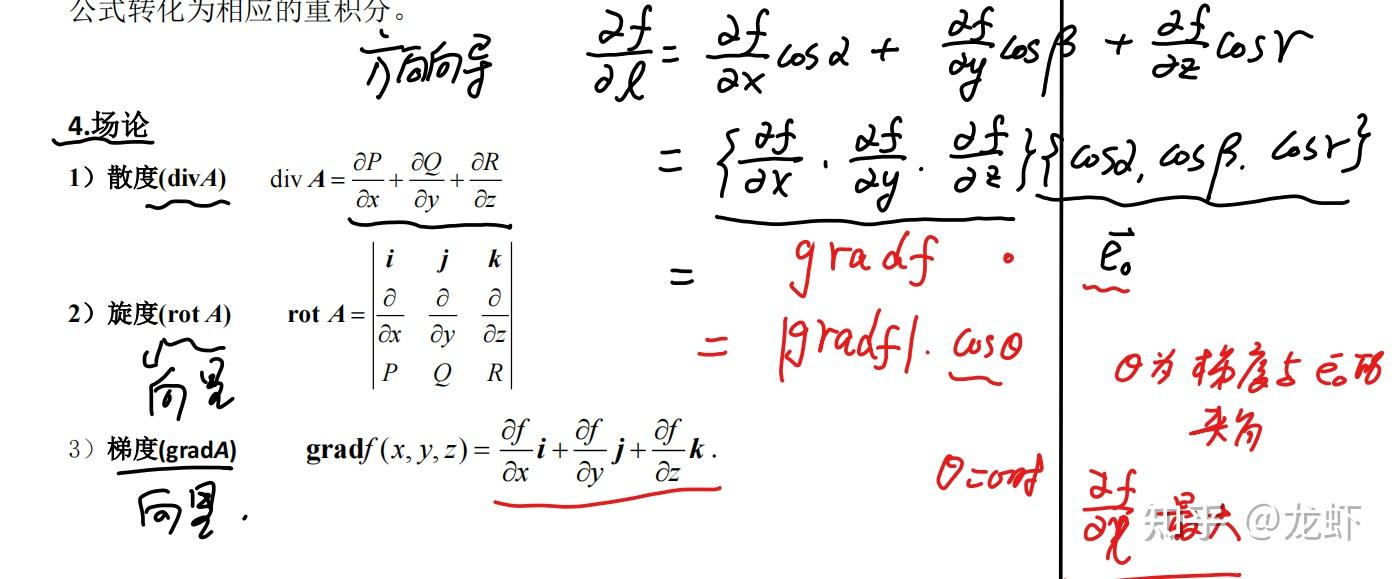 公式转化为相应的重积分。
方向向导 ∂f/∂l = ∂f/∂x cosα + ∂f/∂y cosβ + ∂f/∂z cosγ
4.场论
= {∂f/∂x . ∂f/∂y . ∂f/∂z}{cosα, cosβ. cosγ}
1）散度(divA) div A = ∂P/∂x + ∂Q/∂y + ∂R/∂z
= gradf · e⃗₀
2）旋度(rot A) rot A = | i j k ; ∂/∂x ∂/∂y ∂/∂z ; P Q R |
向量
= |gradf|. cosθ
θ为梯度与e⃗₀的
夹角
3）梯度(gradA) gradf(x, y, z) = ∂f/∂x i + ∂f/∂y j + ∂f/∂z k .
向量.
θ=
∂f/∂l 最大
知乎 @龙虾